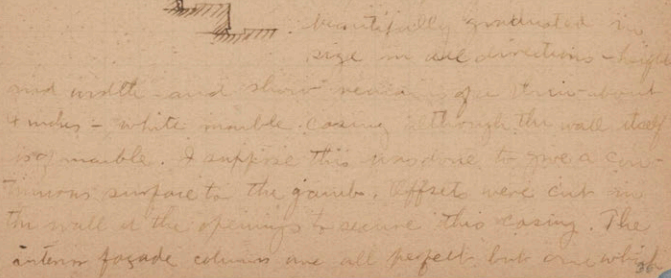 beautifully graduated in
size in all directions - height
and width - and show remains of a thin about
4 inches - white marble casing although the wall itself
is of marble. I suppose this was done to give a con-
tinuous surface to the jambs. Offsets were cut in
the wall at the openings to secure this casing. The
interior façade columns are all perfect but one which